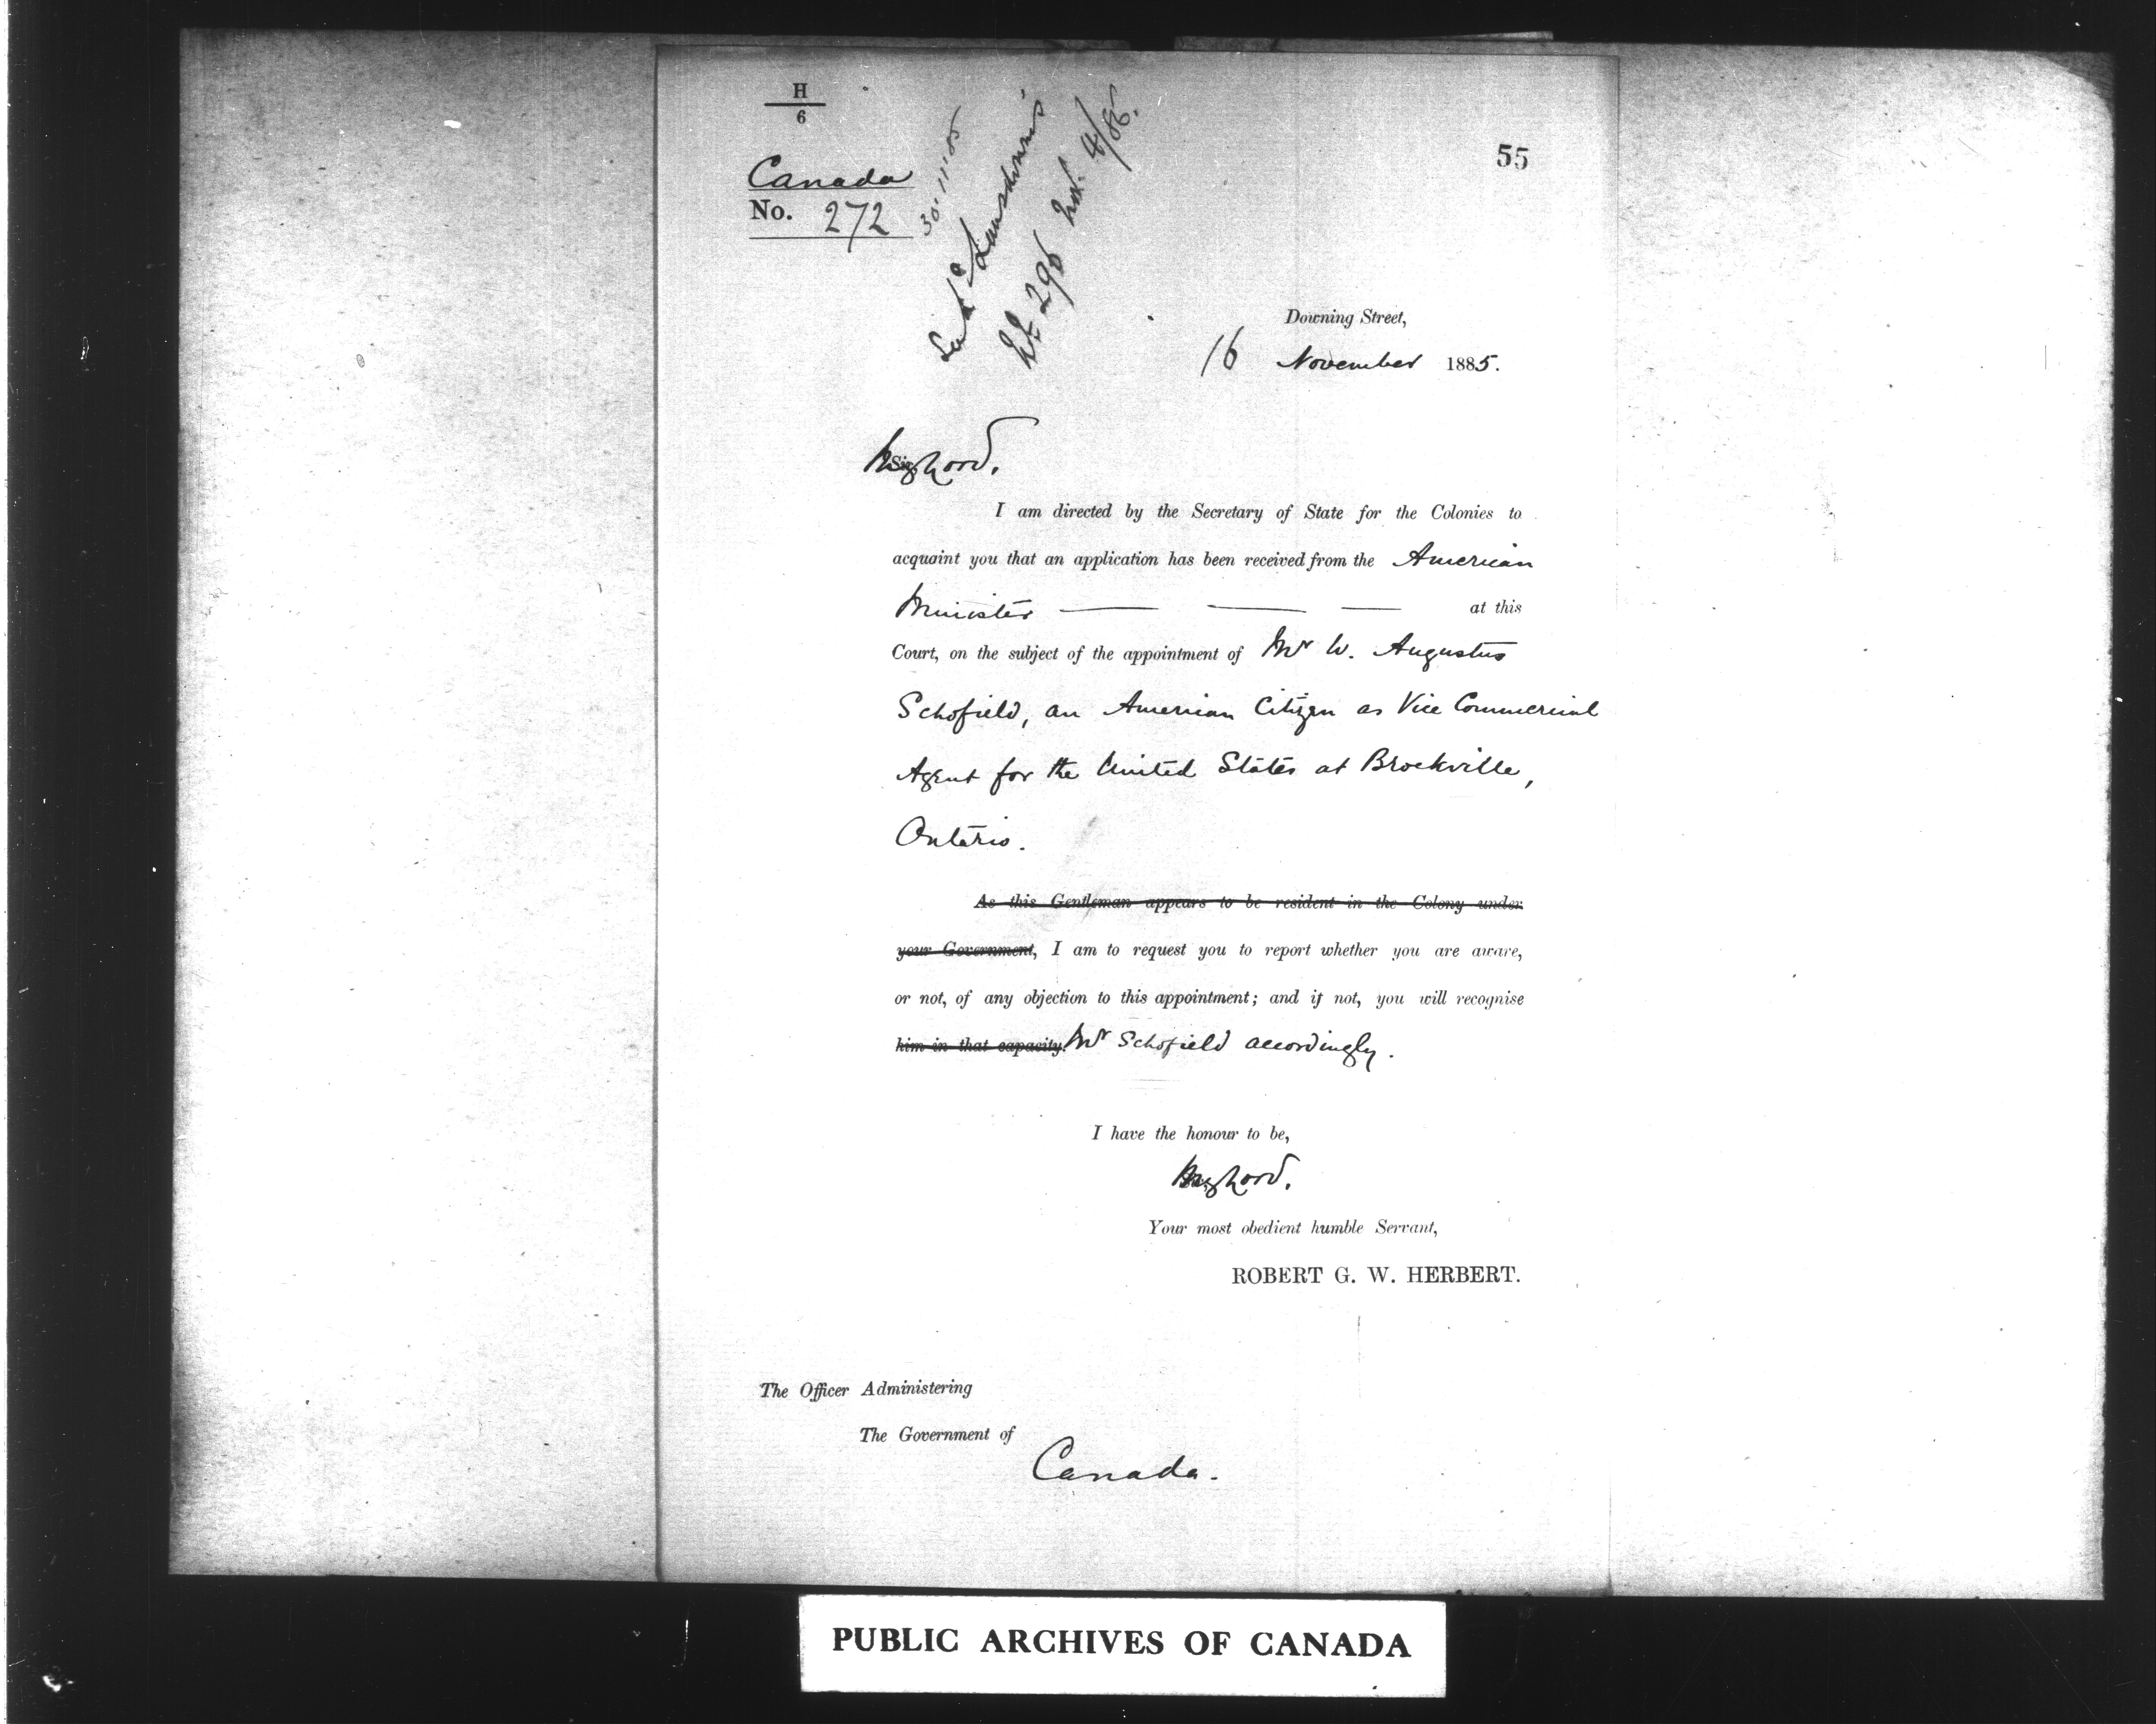 H
6
55
Canada
No. 272
296 Nov. 4/85.
Downing Street,
16 November 1885.
My Lord,
I am directed by the Secretary of State for the Colonies to
acquaint you that an application has been received from the American
Minister — — — at this
Court, on the subject of the appointment of Mr W. Augustus
Schofield, an American Citizen as Vice Commercial
Agent for the United States at Brockville,
Ontario.
As this Gentleman appears to be resident in the Colony under
your Government, I am to request you to report whether you are aware,
or not, of any objection to this appointment; and if not, you will recognise
him in that capacity. Mr Schofield accordingly.
I have the honour to be,
My Lord,
Your most obedient humble Servant,
ROBERT G. W. HERBERT.
The Officer Administering
The Government of
Canada.
PUBLIC ARCHIVES OF CANADA